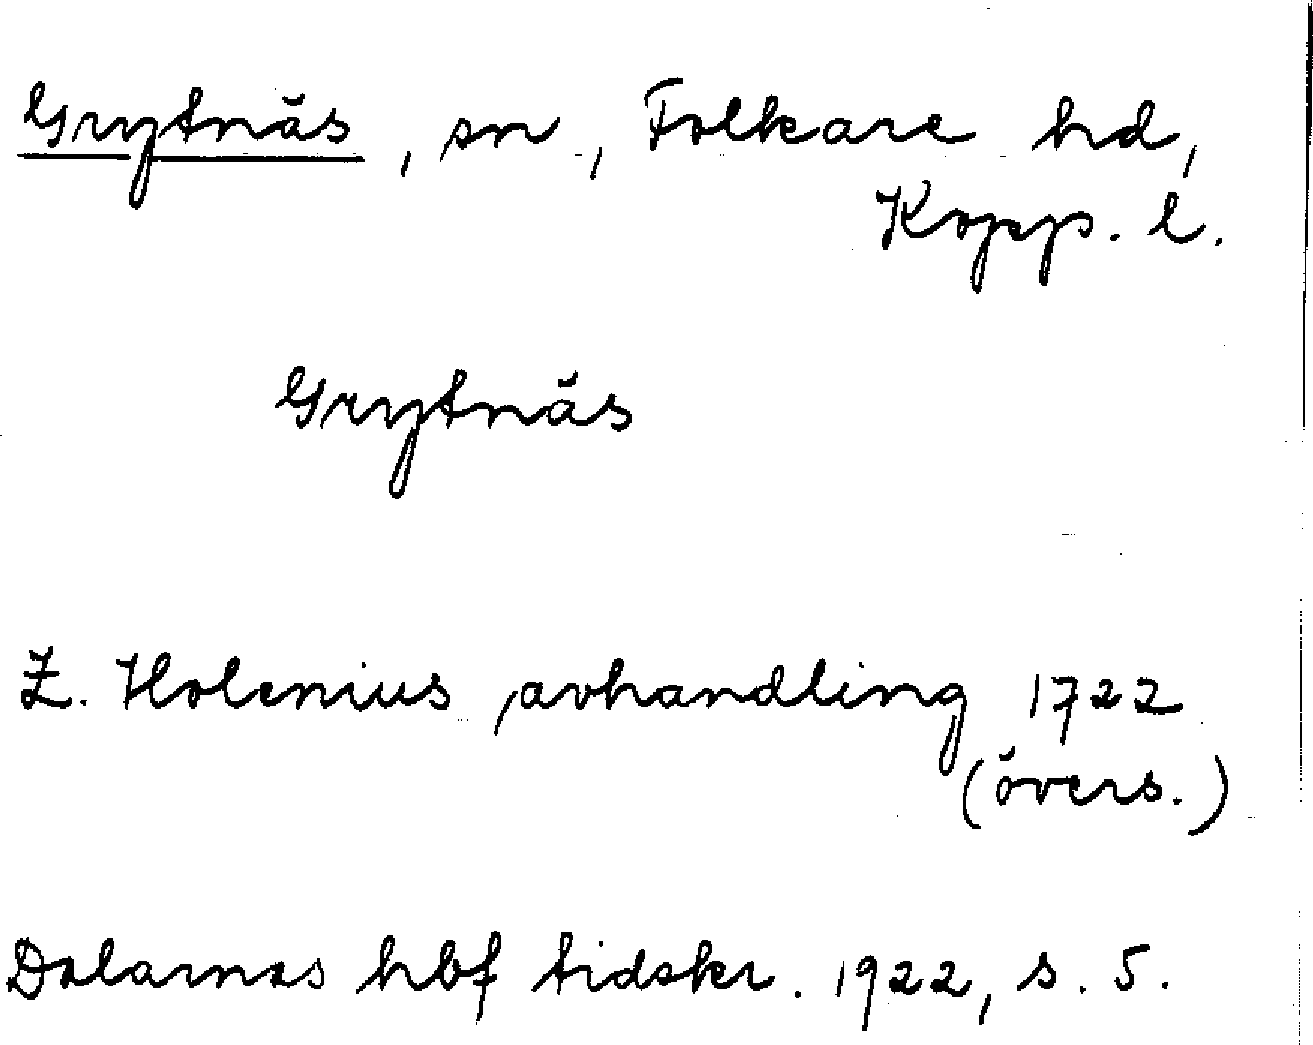 Grytnäs, sn, Folkare hd,
Kopp. l.
Grytnäs
Z. Holenius, avhandling 1722
(övers.)
Dalarnas hbf tidskr. 1922, s. 5.